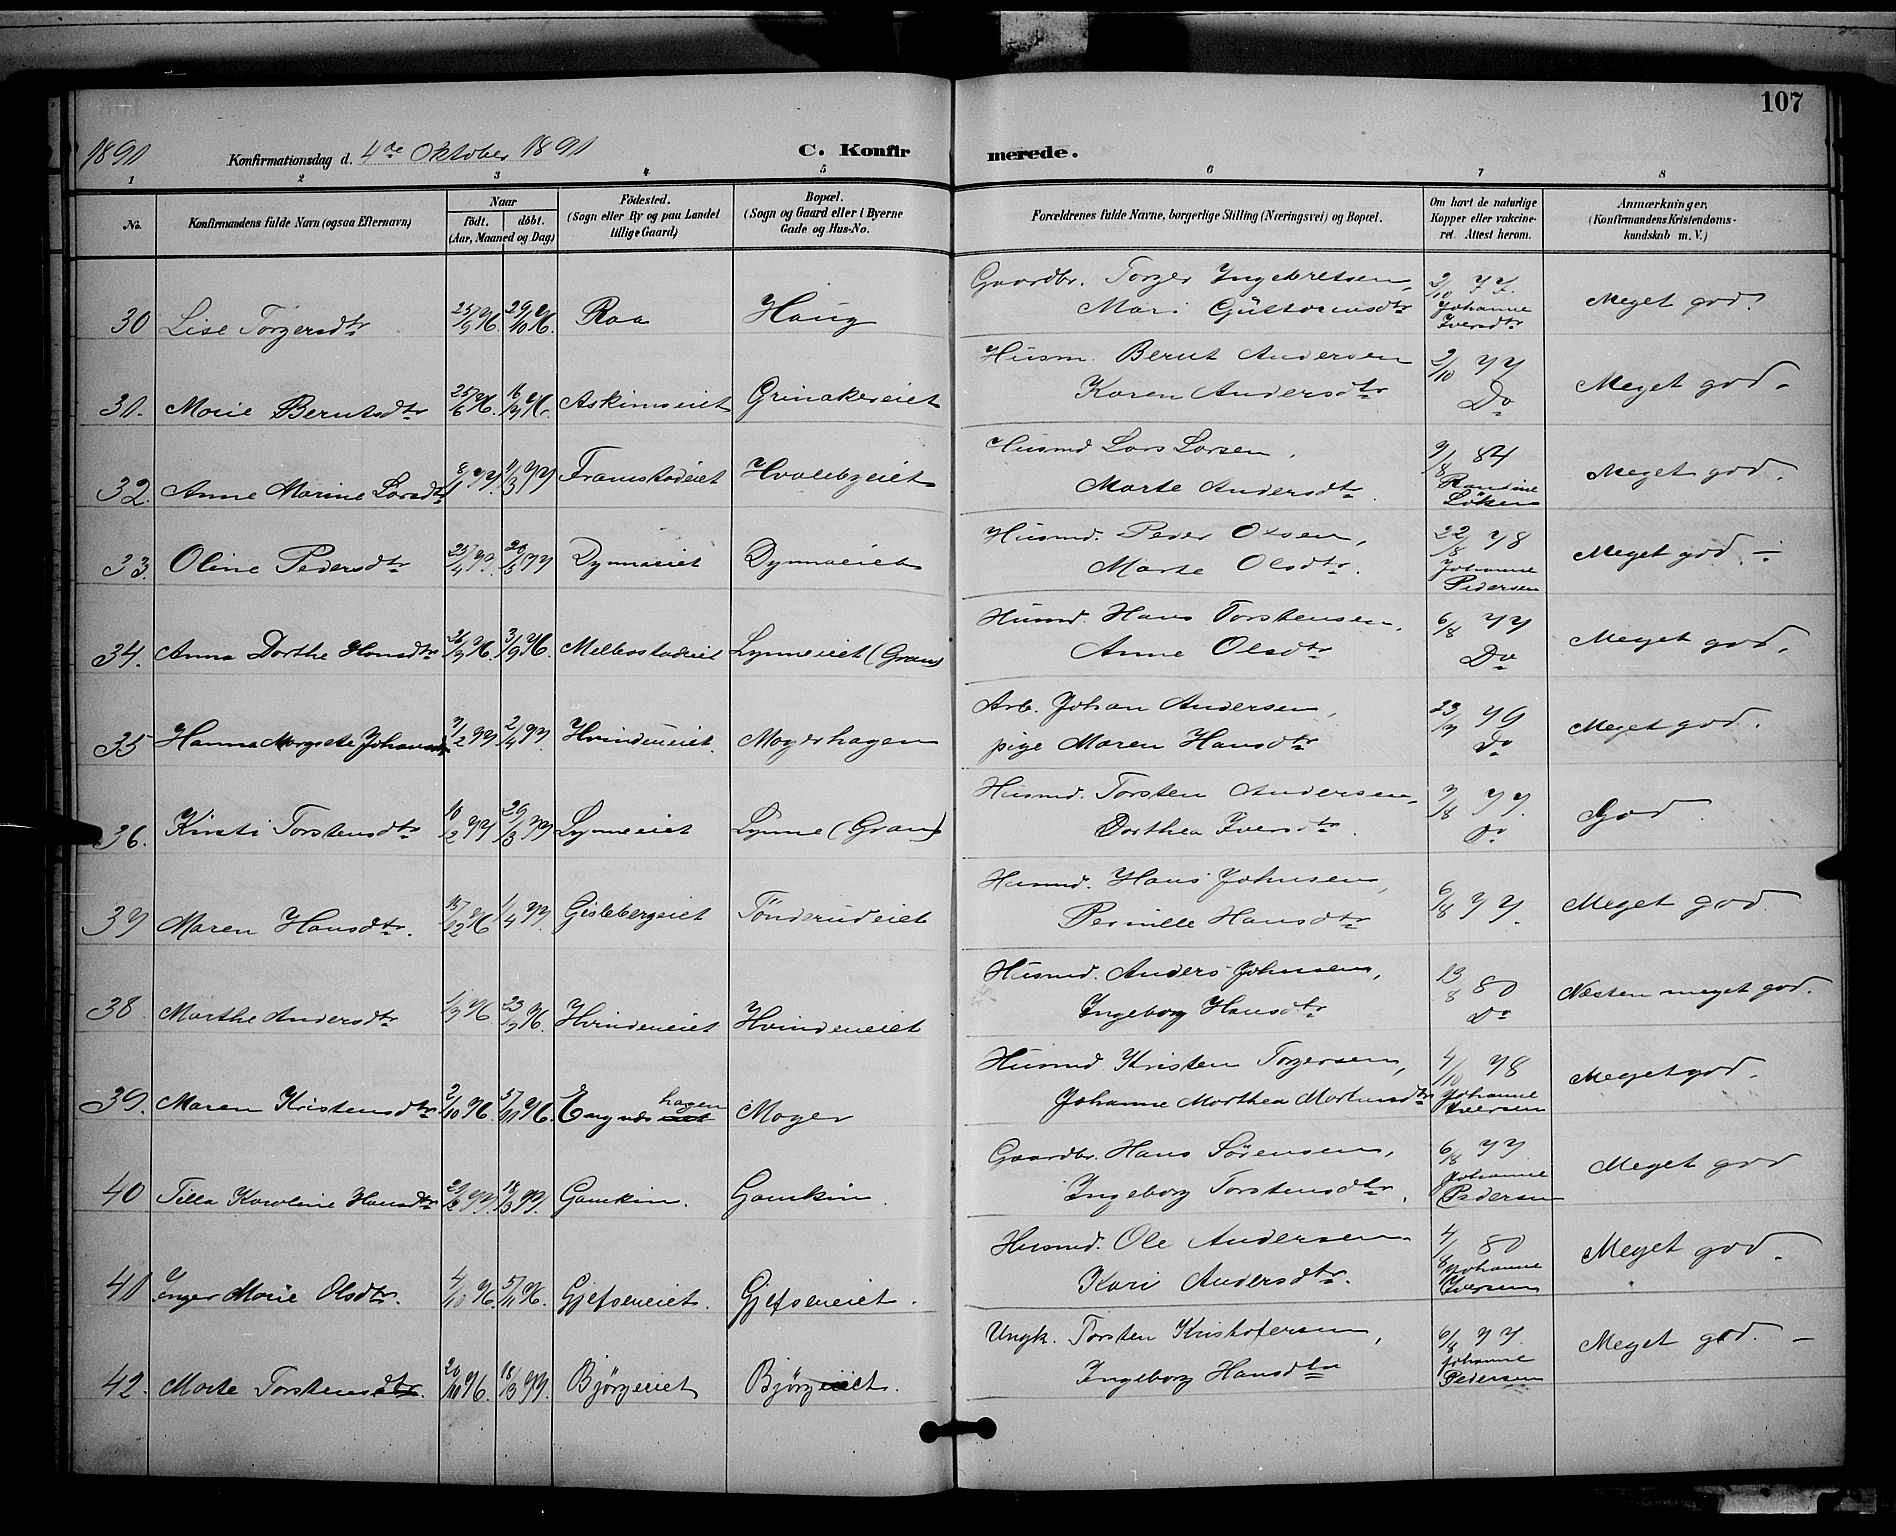 107
1891 Konfirmationsdag d. 4de Oktober 1891 C. Konfirmerede.
1 2 3 4 5 6 7 8
No. Konfirmandens fulde Navn (ogsaa Efternavn) Naar født. døbt. (Aar, Maaned og Dag) Födested. (Sogn eller By og paa Landet tillige Gaard) Bopæl. (Sogn og Gaard eller i Byerne Gade og Hus-No. Forældrenes fulde Navne, borgerlige Stilling (Næringsvei) og Bopæl. Om havt de naturlige Kopper eller vakcineret. Attest herom. Anmærkninger, (Konfirmandens Kristendomskundskab m. V.)
Gaardbr. Torger Ingebretsen, 2/10 77.
30 Lise Torgersdtr 25/9 76. 29/10 76. Raa Haug Mari Guttormsdtr Johanne Iversdtr Meget god.
Husm. Bernt Andersen 2/10 77
31. Marie Berntsdtr 25/6 76. 16/9 76. Askimseiet Grinakereiet Karen Andersdtr Do Meget god.
Husmd Lars Larsen, 9/8 84
32. Anne Marine Larsdtr 8/1 77. 11/3 77 Framstadeiet Hvalebyeiet Marte Andersdtr. Randine Löken Meget god.
Husmd. Peder Olsen, 22/8 78
33. Oline Pedersdtr 25/4 77. 20/5 77 Dynnaeiet Dynnaeiet Marte Olsdtr. Johanne Pedersen Meget god ÷
Husmd. Hans Torstensen, 6/8 77
34. Anna Dorthe Hansdtr 26/7 76. 3/9 76. Melbostadeiet Lynneeiet (Gran) Anne Olsdtr Do Meget god.
Arb. Johan Andersen, 23/9 79
35 Hanna Margrete Johansdtr 7/2 77 2/4 77. Hvindeneiet. Mogerhagen pige Maren Hansdtr Do Meget god.
Husmd. Torsten Andersen, 7/8 77.
36. Kirsti Torstensdtr 10/2 77 29/3 77 Lynneeiet Lynne (Gran) Dorthea Iversdtr. Do God
Husmd. Hans Johnsen,
37 Maren Hansdtr. 15/12 76 1/4 77. Gislebergeiet Tönderudeiet Pernille Hansdtr 6/8 77. Meget god.
Husmd. Anders Johnsen, 13/8 80
38. Marthe Andersdtr 1/7 76 23/7 76. Hvindeneiet Hvindeneiet Ingeborg Hansdtr Do Næsten meget god.
Husmd Kristen Torgersen, 4/10 78
39. Maren Kristensdtr 2/10 76. 5/11 76. hagen Moger Johanne Marthea Mortensdtr Johanne Iversen Meget god.
Gaardbr. Hans Sörensen, 6/8 77
40 Tilla Karoline Hansdtr 29/12 77. 18/3 77. Gamkin. Gamkin. Ingeborg Torstensdtr, Johanne Pedersen Meget god
Husmd. Ole Andersen 4/8 80
41 Inger Marie Olsdtr. 4/10 76. 5/11 76. Gjefseneiet. Gjefseneiet. Kari Andersdtr. Johanne Iversen Meget god.
Ungk. Torsten Kristofersen, 6/8 77.
42. Marte Torstensdtr. 20/10 76. 18/3 77. Bjørgeeiet Bjørgeeiet. Ingeborg Hansdtr Johanne Pedersen Meget god. –